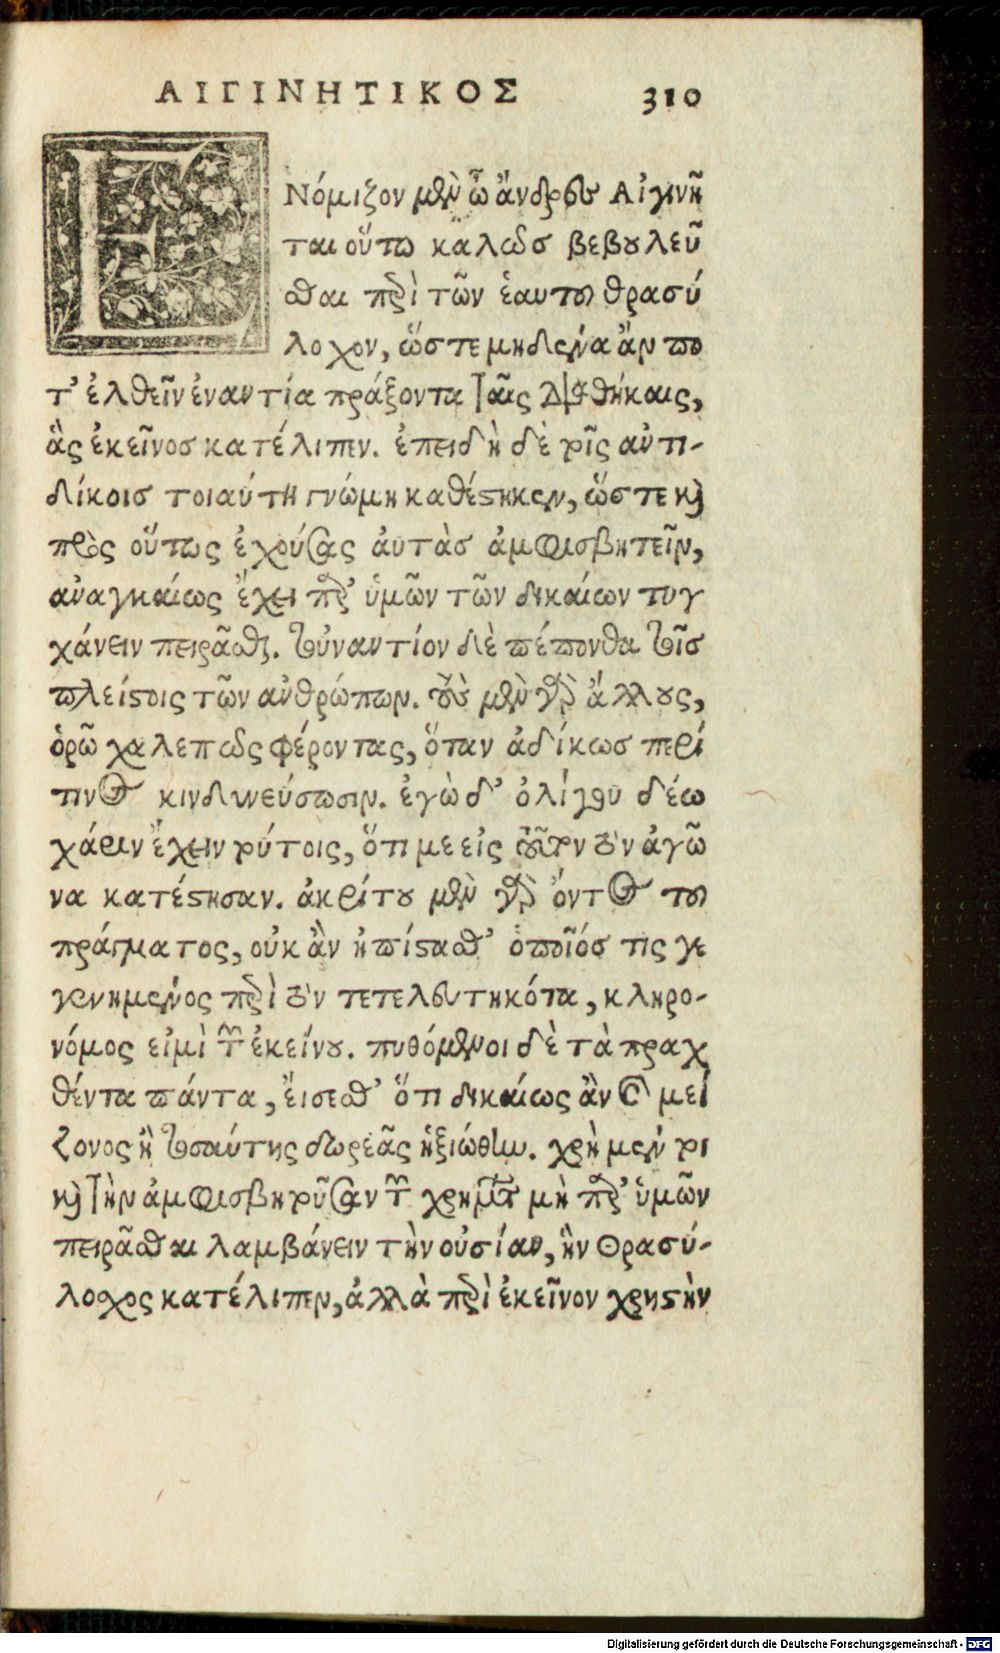 ΑΙΓΙΝΗΤΙΚΟΣ 310
ΕΝόμιζον μὲν ὦ ἄνδρες Αἰγινῆ
ται οὕτω καλῶσ βεβουλεῦ
σθαι περὶ τῶν ἑαυτοῦ θρασύ
λοχον, ὥστε μηδένα ἄν πο
τ' ἐλθεῖν ἐναντία πράξοντα ταῖς διαθήκαις,
ἃς ἐκεῖνοσ κατέλιπεν. ἐπειδὴ δὲ τοῖς αὐτι-
δίκοισ τοιαύτη γνώμη καθέστηκεν, ὥστε καὶ
πρὸς οὕτως ἐχούσας αὐτὰσ ἀμφισβητεῖν,
ἀναγκαίως ἔχει παρ' ὑμῶν τῶν δικαίων τυγ
χάνειν πειρᾶσθαι. τοὐναντίον δὲ πέπονθα τοῖσ
πλείστοις τῶν ἀνθρώπων. τοὺς μὲν γὰρ ἄλλους,
ὁρῶ χαλεπῶς φέροντας, ὅταν ἀδίκωσ περί
τινος κινδυνεύσωσιν. ἐγὼ δ' ὀλίγου δέω
χάριν ἔχειν τούτοις, ὅτι με εἰς τοῦτον τὸν ἀγῶ
να κατέστησαν. ἀκρίτου μὲν γὰρ ὄντος τοῦ
πράγματος, οὐκ ἂν ἠπίστασθ' ὁποῖός τις γε
γενημένος περὶ τὸν τετελευτηκότα, κληρο-
νόμος εἰμὶ τῶν ἐκείνου. πυθόμενοι δὲ τὰ πραχ
θέντα πάντα, εἴσεσθ' ὅτι δικαίως ἂν καὶ μεί
ζονος ἢ τοσαύτης δωρεᾶς ἠξιώθην. χρὴ μέν τοι
καὶ τὴν ἀμφισβητοῦσαν τῶν χρημάτων μὴ παρ' ὑμῶν
πειρᾶσθαι λαμβάνειν τὴν οὐσίαν, ἣν Θρασύ-
λοχος κατέλιπεν, ἀλλὰ περὶ ἐκεῖνον χρηστὴν
Digitalisierung gefördert durch die Deutsche Forschungsgemeinschaft - DFG